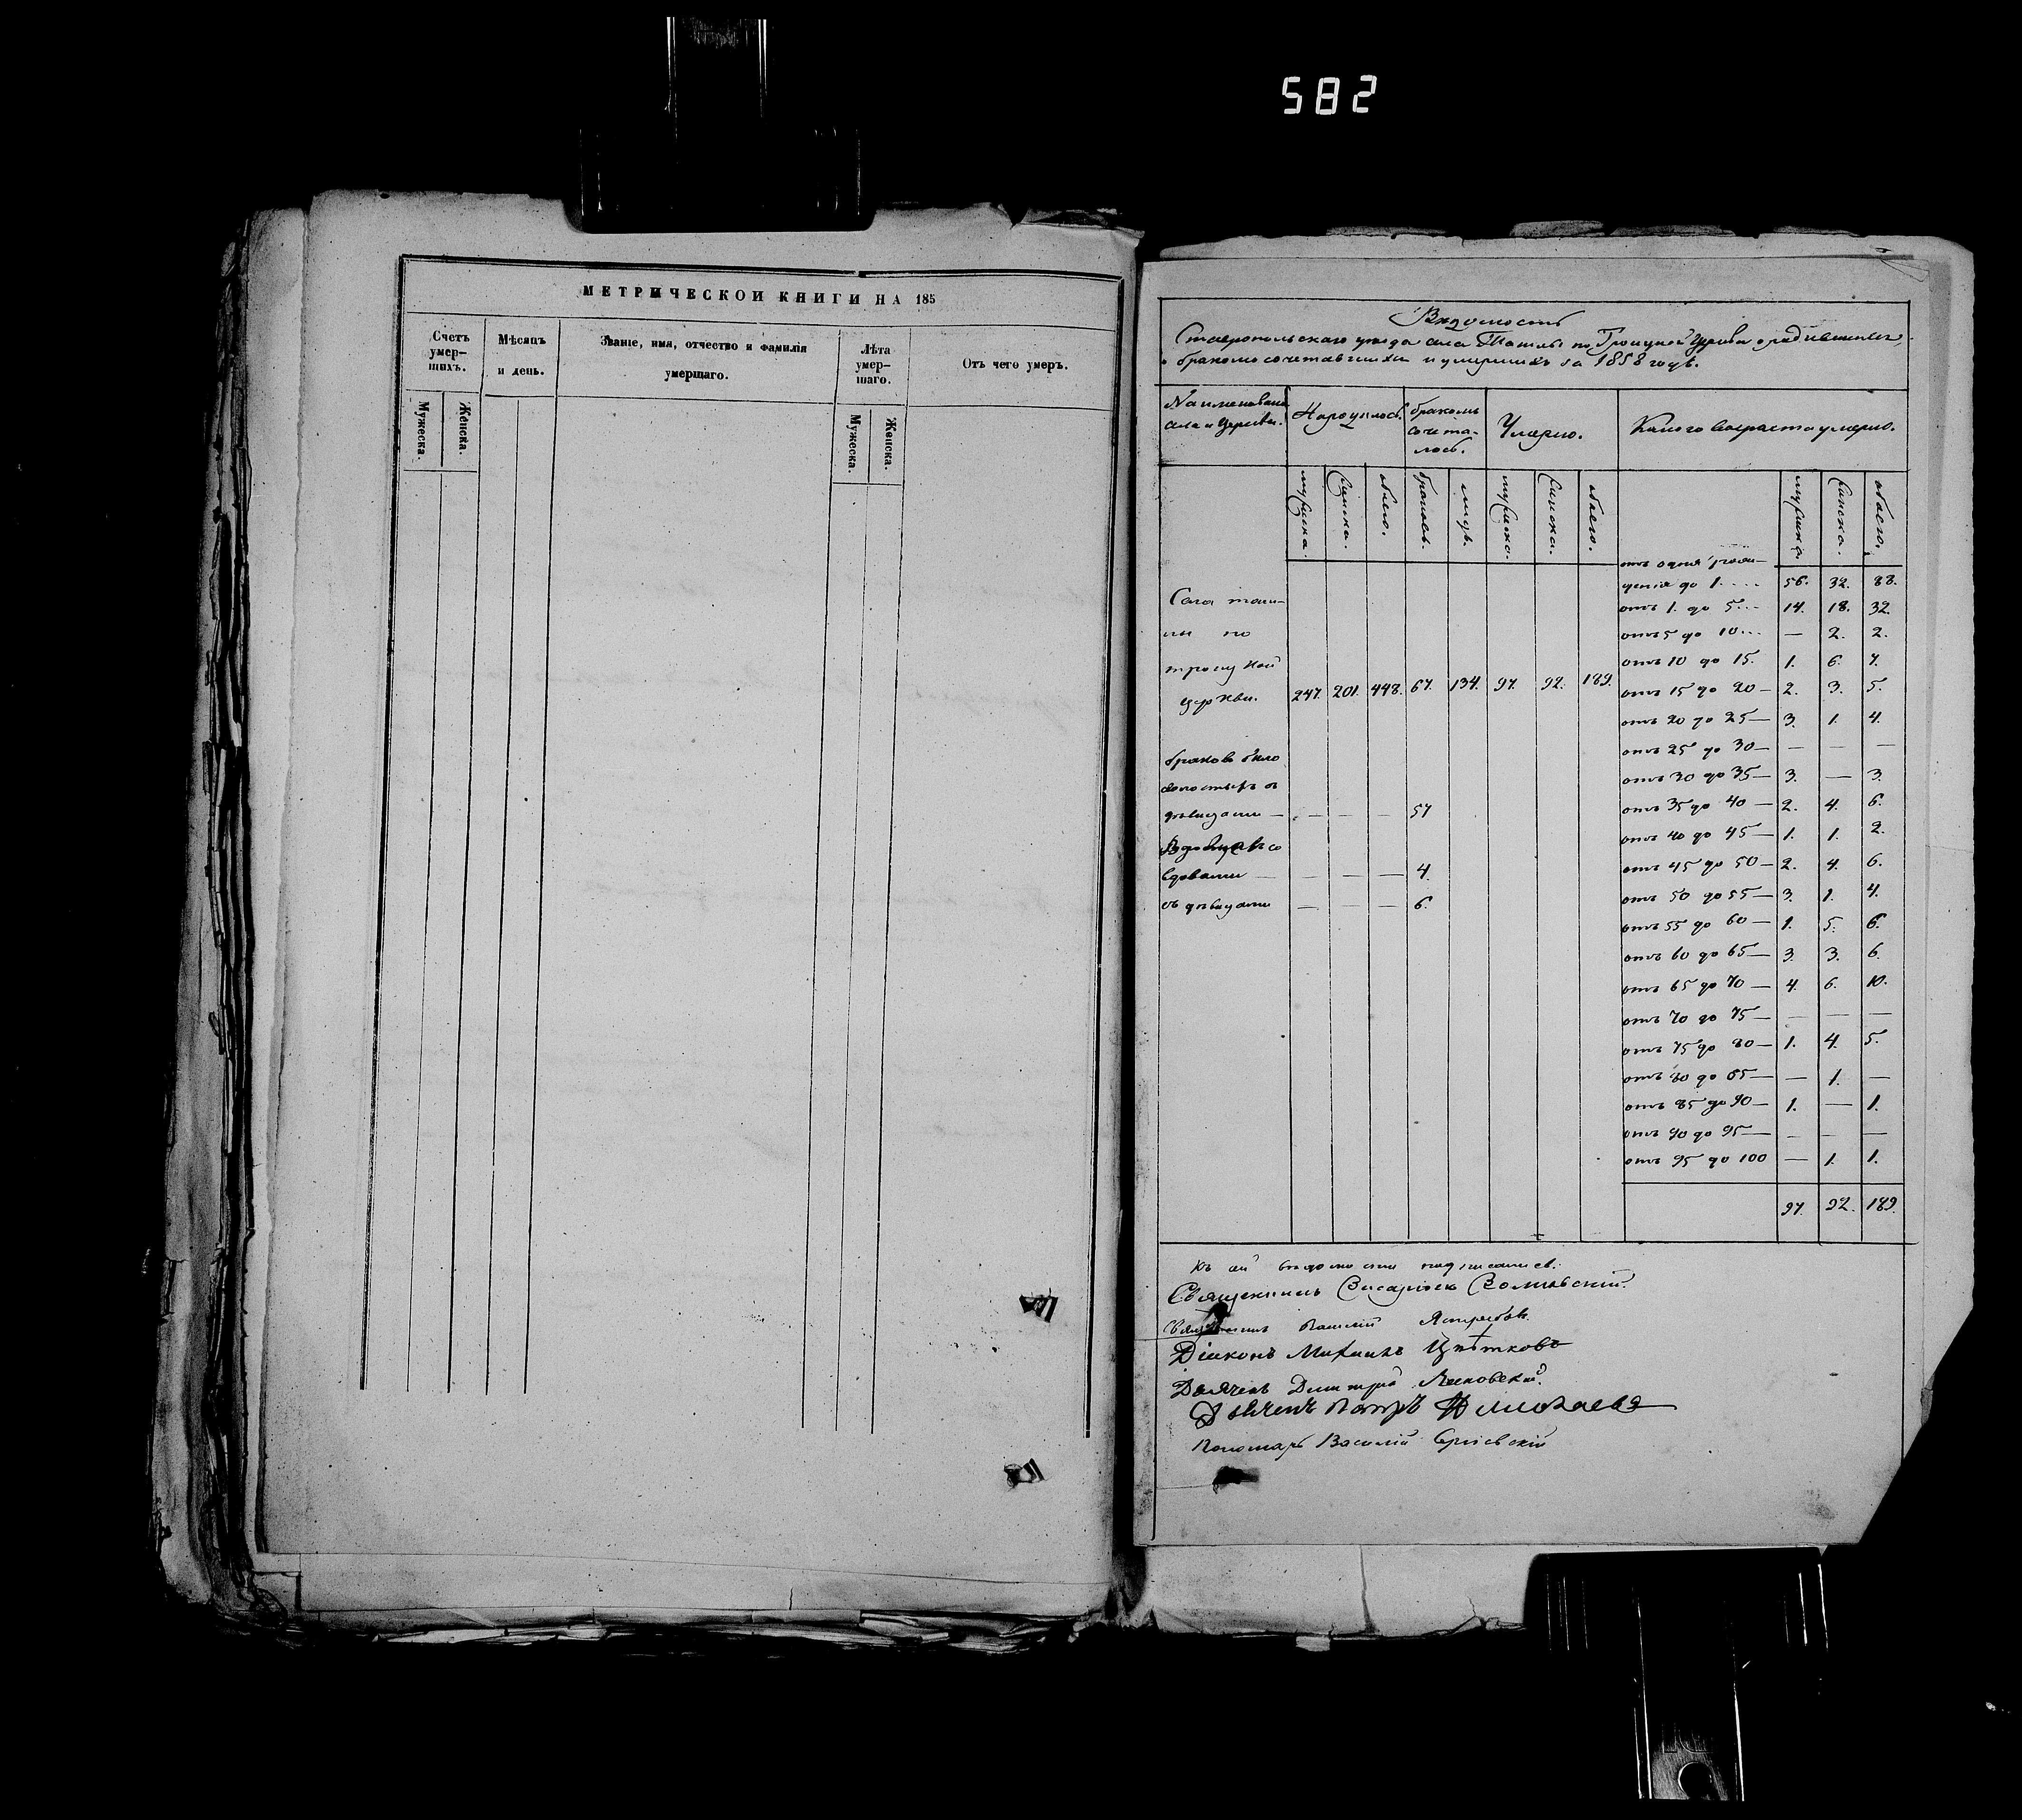 582
МЕТРИЧЕСКОИ КНИГИ НА 185
Счетъ умер-шихъ.
Мѣсяцъ и день.
Званіе, имя, отчество и фамилія умершаго.
Лѣта умер-шаго.
Отъ чего умеръ.
Мужеска.
Женска.
Мужеска.
Женска.
Вѣдомость
Ставропольскаго уѣзда села Ташлы по Троицкой Церкви о родившихся,
бракомъ сочетавшихся и умершихъ за 1858 годъ.
Наименованіе села и Церкви.
Народилось.
бракомъ сочета-лось.
Умерло.
Какого возраста умерло.
мужеска. женска. обоего. браковъ. лицъ. мужеска. женска. обоего. мужеска. женска. обоего.
Села Таш-
лы по
троицкой
церкви. 247. 201. 448. 67. 134. 97. 92. 189.
браковъ было
холостыхъ съ
дѣвицами — — — — 57
Вдовцовъ со
вдовами — — — — 4.
съ дѣвицами — — — 6.
отъ дня рож-
денія до 1.... 56. 32. 88.
отъ 1. до 5... 14. 18. 32.
отъ 5 до 10... — 2. 2.
отъ 10 до 15. 1. 6. 7.
отъ 15 до 20 — 2. 3. 5.
отъ 20 до 25 — 3. 1. 4.
отъ 25 до 30 — — — —
отъ 30 до 35 — 3. — 3.
отъ 35 до 40 — 2. 4. 6.
отъ 40 до 45 — 1. 1. 2.
отъ 45 до 50 — 2. 4. 6.
отъ 50 до 55 — 3. 1. 4.
отъ 55 до 60 — 1. 5. 6.
отъ 60 до 65 — 3. 3. 6.
отъ 65 до 70 — 4. 6. 10.
отъ 70 до 75 — — — —
отъ 75 до 80 — 1. 4. 5.
отъ 80 до 85 — — 1. —
отъ 85 до 90 — 1. — 1.
отъ 90 до 95 — — — —
отъ 95 до 100 — 1. 1.
97. 92. 189.
Къ сей вѣдомости подписались:
Священникъ Висаріонъ
Священникъ Ястребовъ.
Діаконъ Михаилъ Цвѣтковъ
Дьячекъ Димитрій
Дьячекъ Петръ Николаевъ
Пономарь Василій